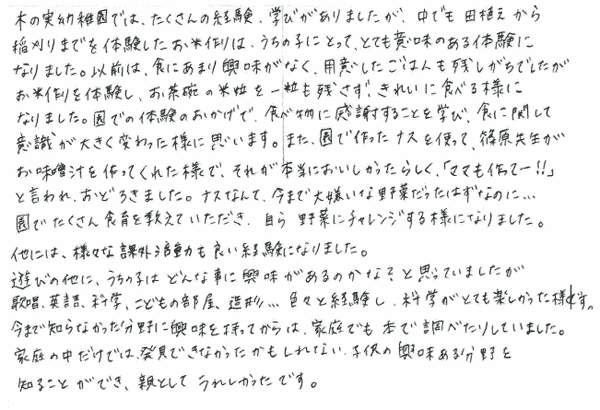 木の実幼稚園では、たくさんの経験、学びがありましたが、中でも田植えから
稲刈りまでを体験したお米作りは、うちの子にとって、とても意味のある体験に
なりました。以前は、食にあまり興味がなく、用意したごはんも残しがちでしたが
お米作りを体験し、お茶碗の米粒を一粒も残さず、きれいに食べる様に
なりました。園での体験のおかげで、食べ物に感謝することを学び、食に関して
意識が大きく変わった様に思います。また、園で作ったナスを使って、篠原先生が
お味噌汁を作ってくれた様で、それが本当においしかったらしく、「ママも作ってー!!」
と言われ、おどろきました。ナスなんて、今まで大嫌いな野菜だったはずなのに…
園でたくさん食育を教えていただき、自ら野菜にチャレンジする様になりました。
他には、様々な課外活動も良い経験になりました。
遊びの他に、うちの子はどんな事に興味があるのかな?と思っていましたが
歌唱、英語、科学、こどもの部屋、造形…色々と経験し、科学がとても楽しかった様です。
今まで知らなかった分野に興味を持ってからは、家庭でも本で調べたりしていました。
家庭の中だけでは、発見できなかったかもしれない、子供の興味ある分野を
知ることができ、親としてうれしかったです。